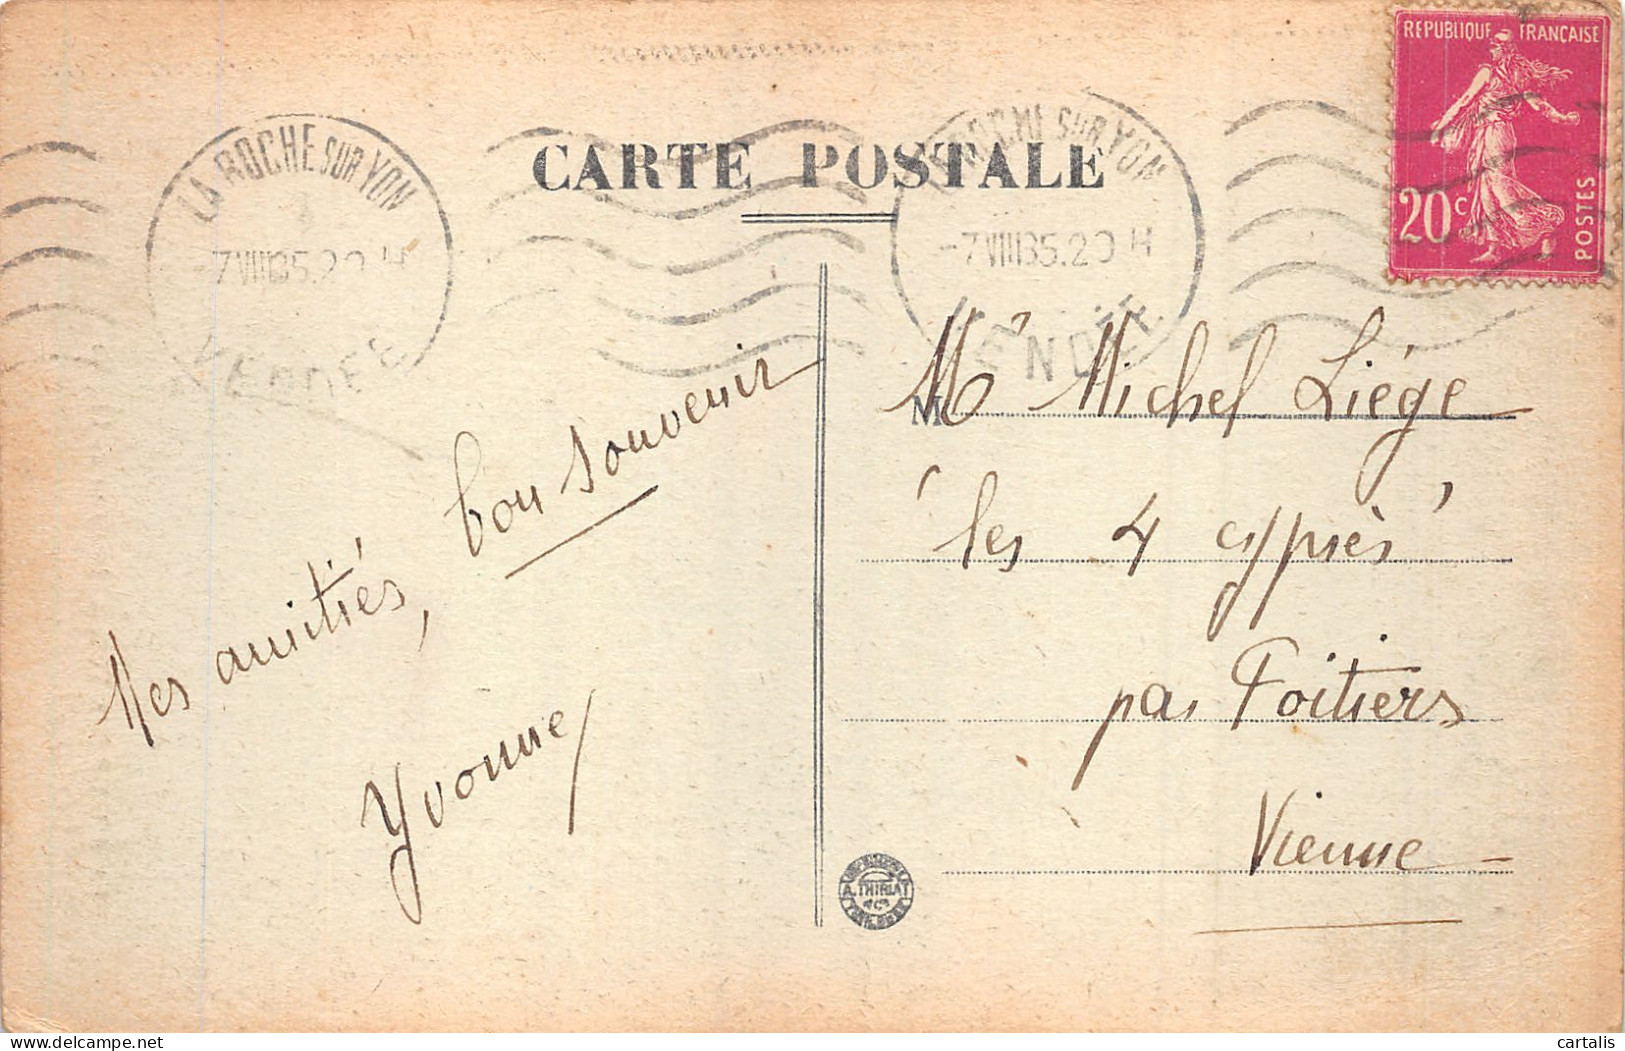 REPUBLIQUE FRANÇAISE
20c
POSTES
LA ROCHE SUR YON
-7 VIII 35.20 H
VENDÉE
LA ROCHE SUR YON
-7 VIII 35.20 H
VENDÉE
CARTE POSTALE
Mes amitiés, bon souvenir
Yvonne
M
Mr Michel Liége
"les 4 cyprès"
par Poitiers
Vienne
A. THIRIAT
cartalis
delcampe.net